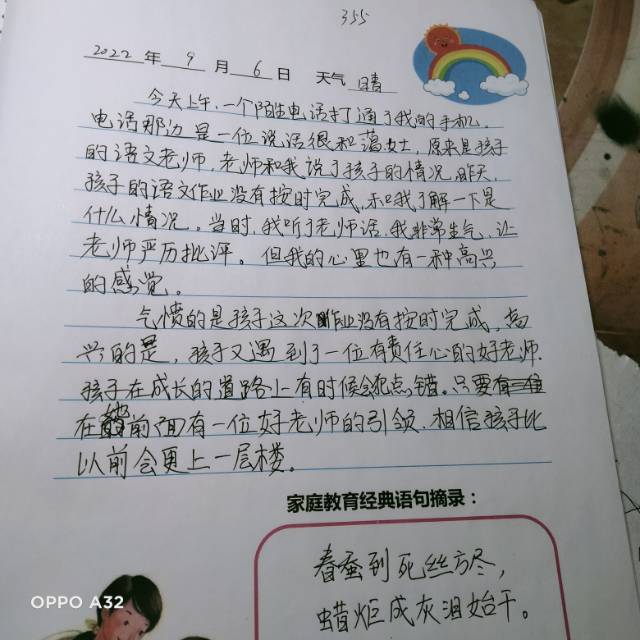 355
2022 年 9 月 6 日 天气 晴
今天上午,一个陌生电话打通了我的手机,
电话那边是一位说话很和蔼女,原来是孩子
的语文老师,老师和我说了孩子的情况,昨天,
孩子的语文作业没有按时完成,和我了解一下是
什么情况。当时,我听了老师话,我非常生气、让
老师严厉批评。但我的心里也有一种高兴
的感觉。
气愤的是孩子这次作业没有按时完成,高
兴的是,孩子又遇到了一位有责任心的好老师.
孩子在成长的道路上有时候会犯点错。只要
在前面有一位好老师的引领,相信孩子比
以前会更上一层楼。
家庭教育经典语句摘录:
春蚕到死丝方尽,
蜡炬成灰泪始干。
OPPO A32